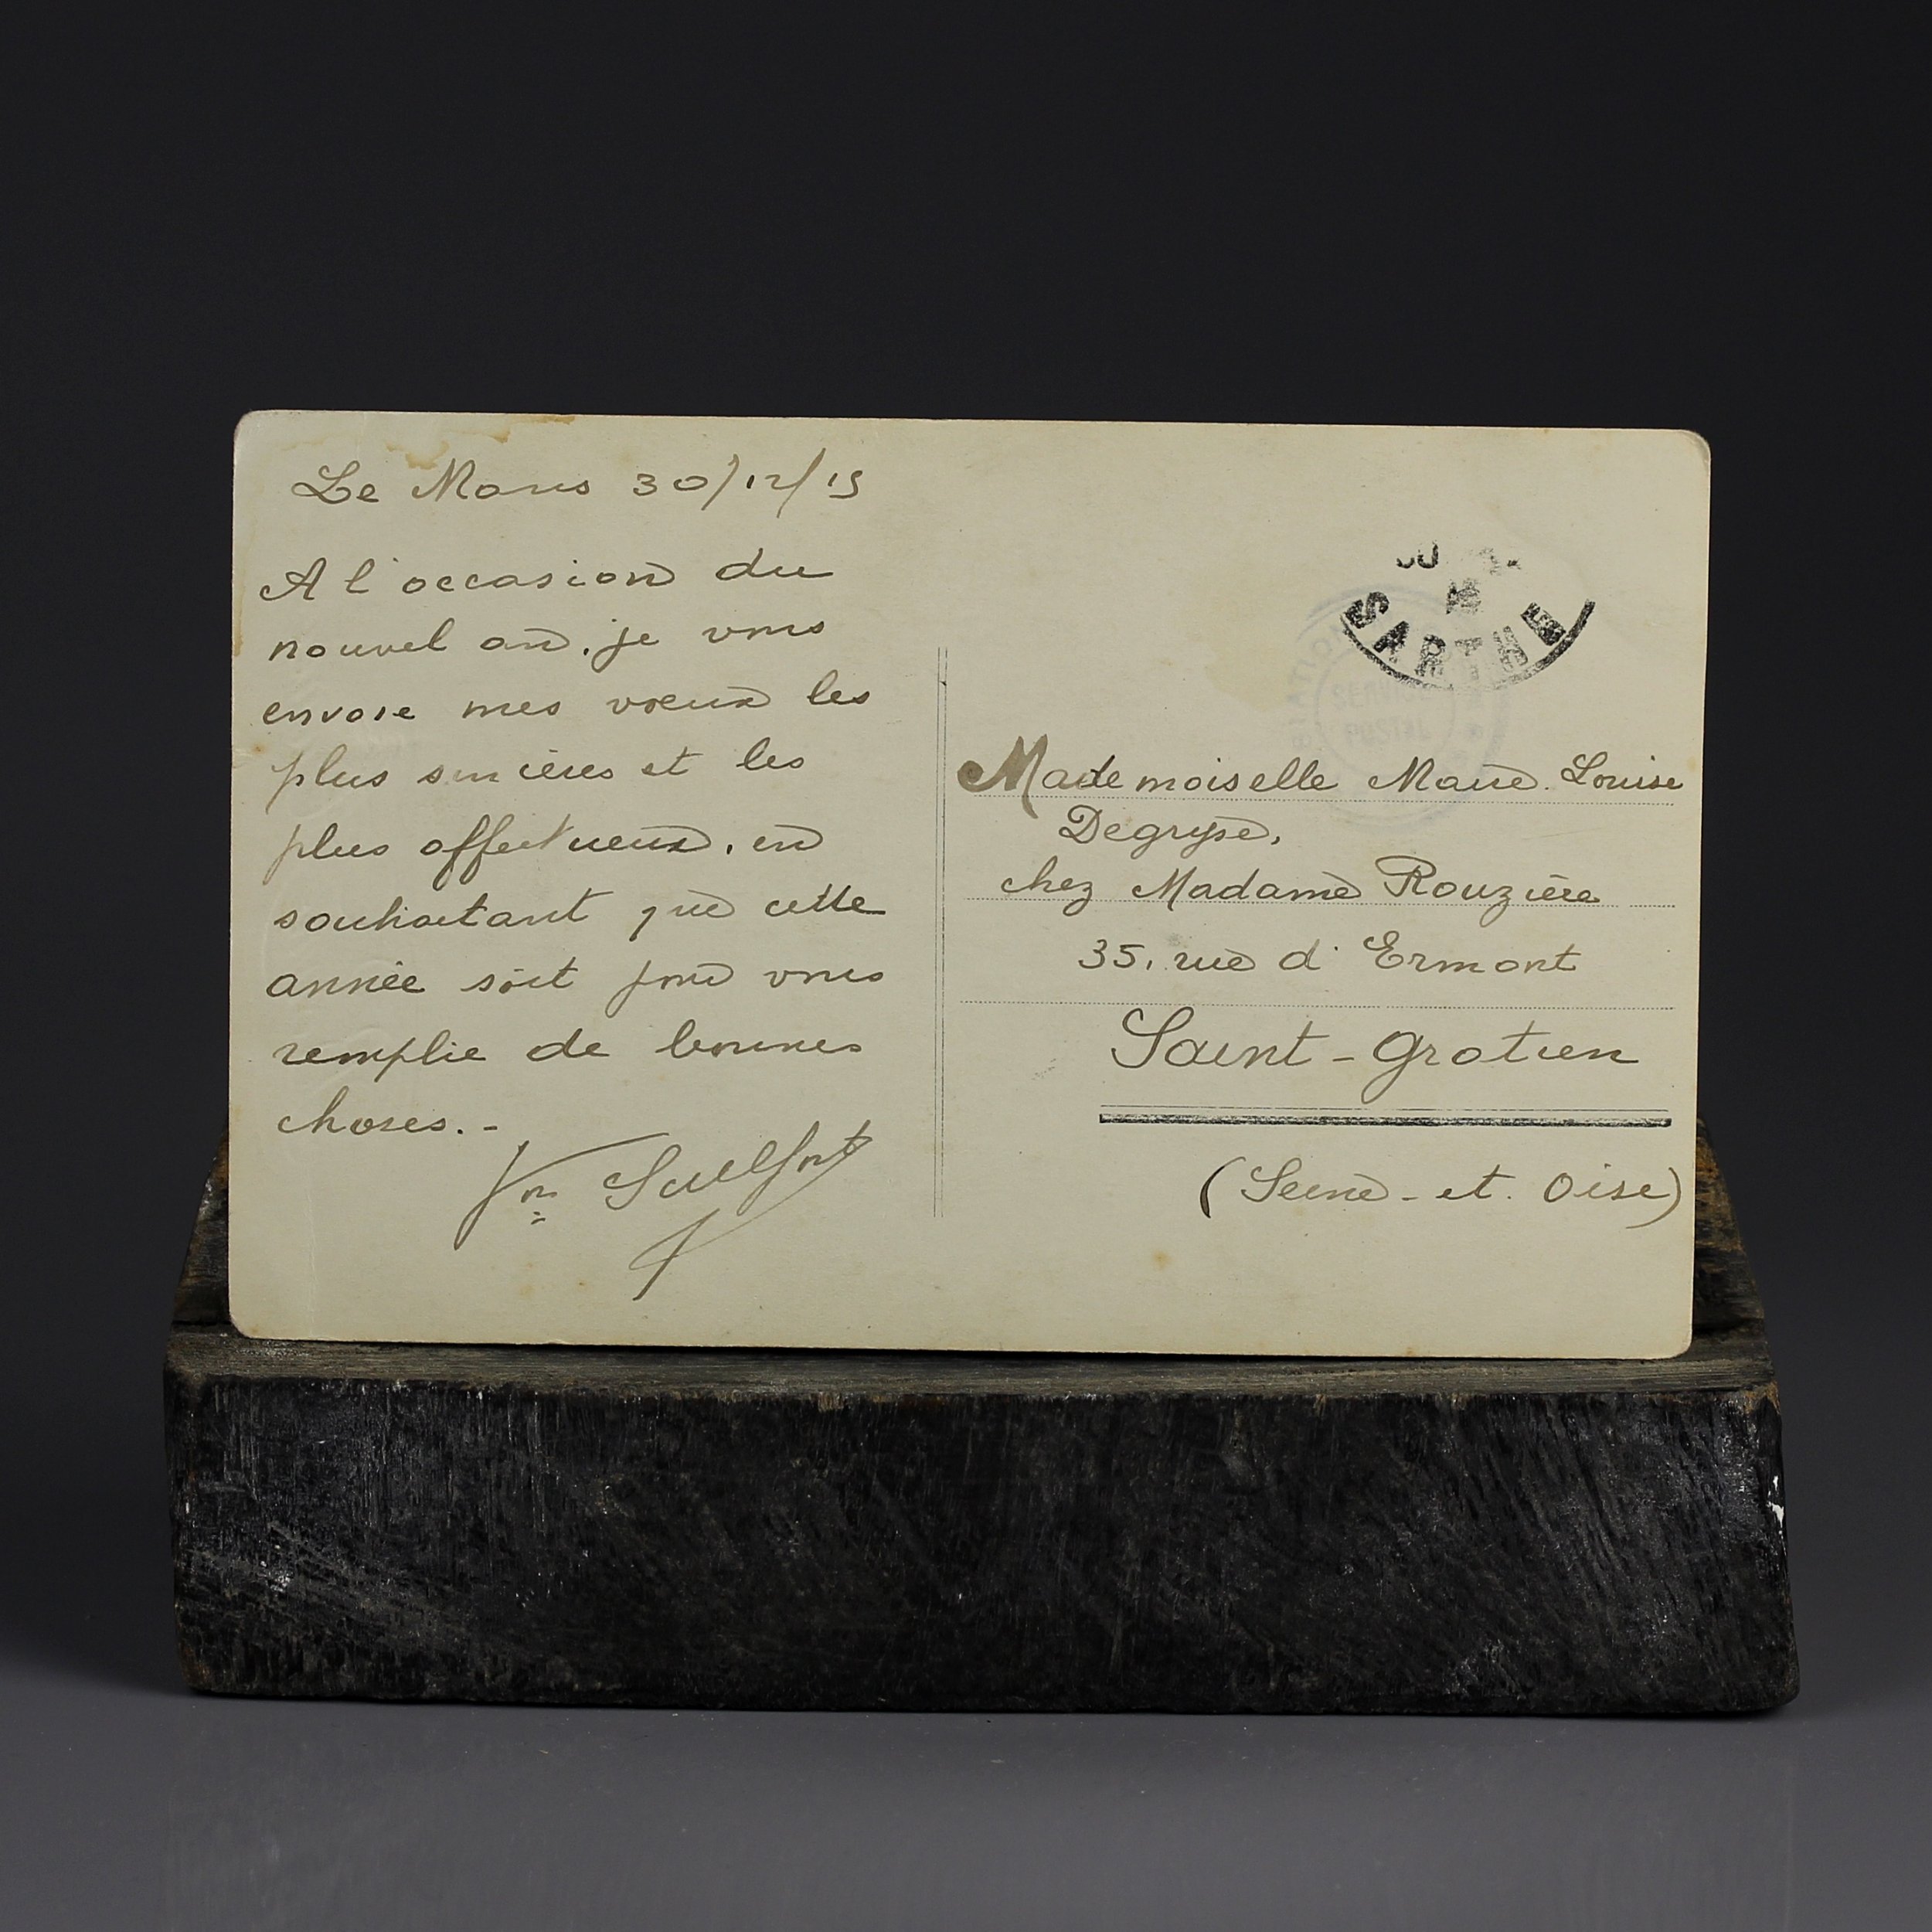 Le Mans 30/12/15
A l'occasion du
nouvel an, je vous
envoie mes vœux les
plus sincères et les
plus affectueux, en
souhaitant que cette
année soit pour vous
remplie de bonnes
choses.-
SARTHE
SERVICE
POSTAL
Mademoiselle Marie-Louise
Degryse,
chez Madame Rouzière
35, rue d'Ermont
Saint-Gratien
(Seine-et-Oise)